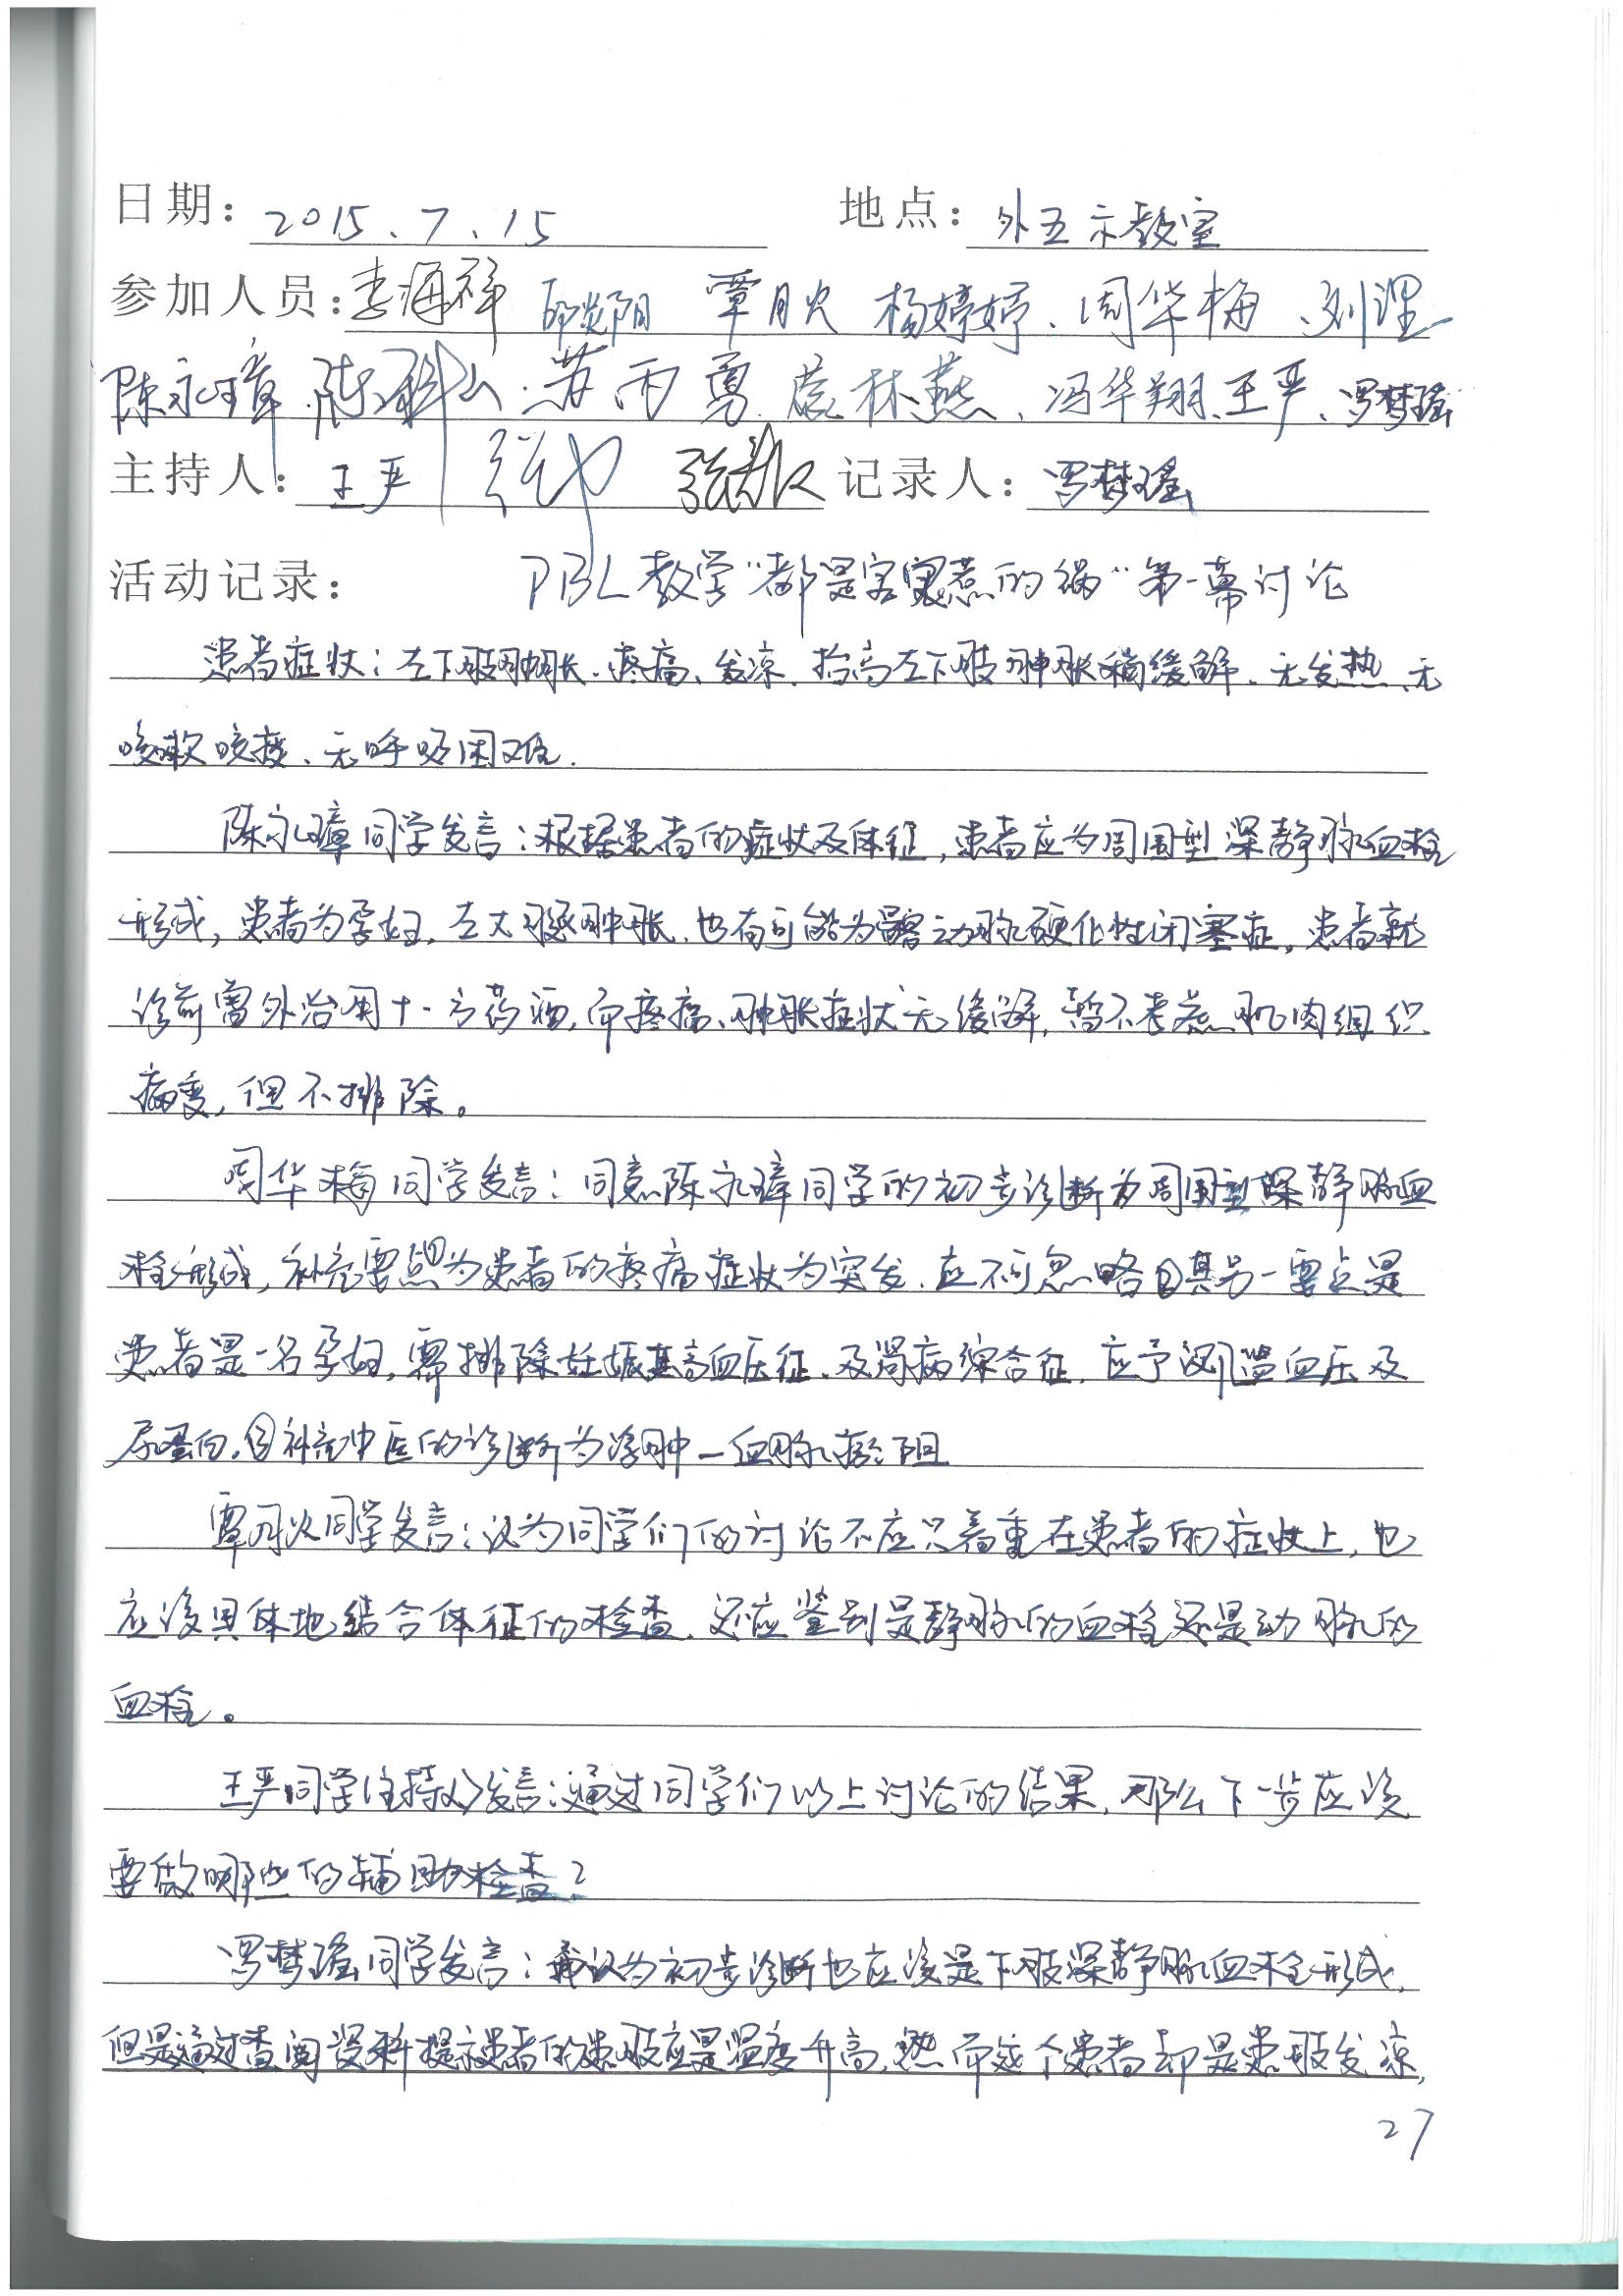 日期: 2015.7.15 地点: 外五示教室
参加人员: 李海祥 邱炎阳 覃月火 杨婷婷、周华梅、刘理
陈永璋、陈 苏丙勇、林燕、冯华翔、王严、冯梦瑶
主持人: 王严 记录人: 冯梦瑶
活动记录: PBL教学“都是害喜惹的祸”第一幕讨论
患者症状:左下肢肿胀、疼痛、发凉、抬高左下肢肿胀稍缓解、无发热、无
咳嗽咳痰、无呼吸困难.
陈永璋同学发言:根据患者的症状及体征,患者应为周围型深静脉血栓
形成,患者为孕妇,左大腿肿胀,也有可能为动脉硬化性闭塞症。患者就
诊前曾外治用十一方药酒,而疼痛、肿胀症状无缓解,暂不考虑肌肉组织
病变,但不排除。
周华梅同学发言:同意陈永璋同学的初步诊断为周围型深静脉血
栓形成,补充要点①为患者的疼痛症状为突发,应不可忽略②其另一要点是
患者是一名孕妇,需排除妊娠高血压征、及肾病综合征,应予测量血压及
尿蛋白。③补充中医的诊断为浮肿—血脉瘀阻
覃月火同学发言:认为同学们的讨论不应只着重在患者的症状上,也
应该具体地结合体征的检查,还应鉴别是静脉的血栓还是动脉的
血栓。
王严同学(主持人)发言:通过同学们以上讨论的结果,那么下一步应该
要做哪些的辅助检查?
冯梦瑶同学发言:我认为初步诊断也应该是下肢深静脉血栓形成,
但是通过查阅资料提示患者的患肢应是温度升高,然而这个患者却是患肢发凉,
27